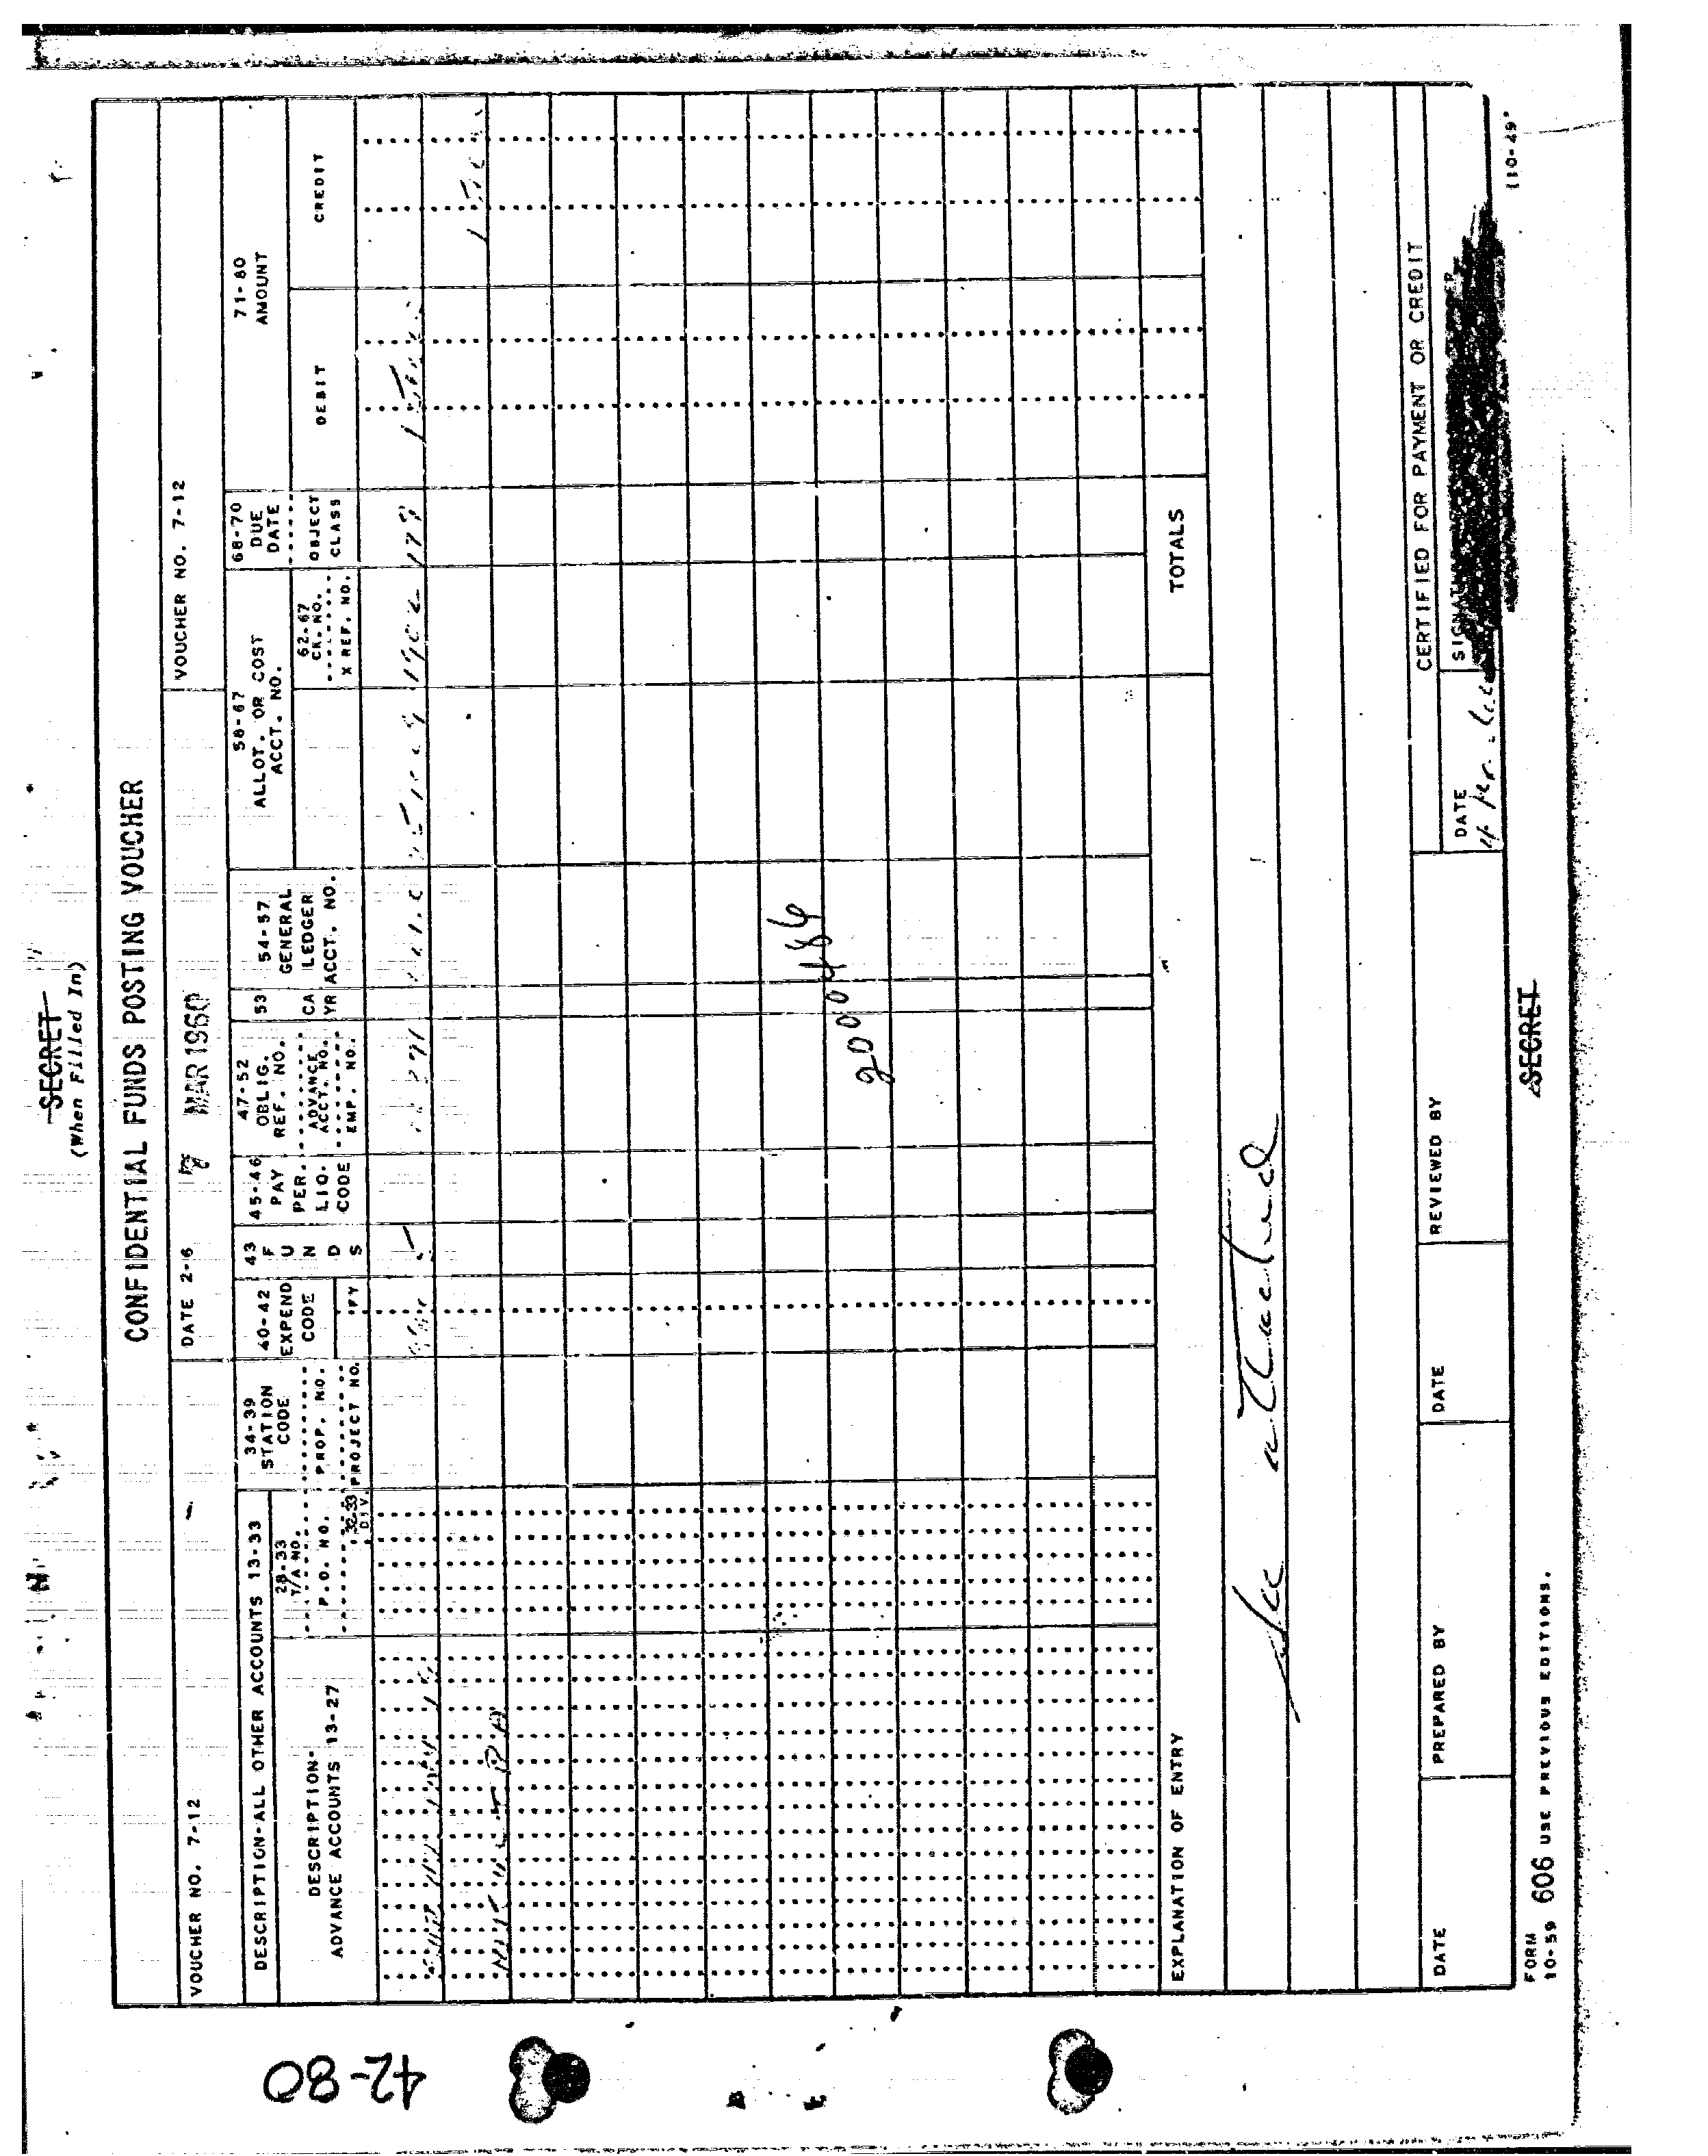 SECRET
(When Filled In)
CONFIDENTIAL FUNDS POSTING VOUCHER
VOUCHER NO. 7-12
DATE 2-6
MAR 1960
VOUCHER NO. 7-12
DESCRIPTION-ALL OTHER ACCOUNTS 13-33
DESCRIPTION-
ADVANCE ACCOUNTS 13-27
28-33
T/A NO.
P.O. NO.
32-33
DIV.
34-39
STATION
CODE
PROP. NO.
PROJECT NO.
40-42
EXPEND
CODE
FY
43
F
U
N
D
S
45-46
PAY
PER.
LIQ.
CODE
47-52
OBLIG.
REF. NO.
ADVANCE
ACCT. NO.
EMP. NO.
53
CA
YR
54-57
GENERAL
LEDGER
ACCT. NO.
58-67
ALLOT. OR COST
ACCT. NO.
62-67
CK. NO.
X REF. NO.
68-70
DUE
DATE
OBJECT
CLASS
71-80
AMOUNT
DEBIT
CREDIT
2000486
TOTALS
EXPLANATION OF ENTRY
See attached
CERTIFIED FOR PAYMENT OR CREDIT
DATE
PREPARED BY
DATE
REVIEWED BY
DATE
FORM
10-59 606 USE PREVIOUS EDITIONS.
SECRET
42-80